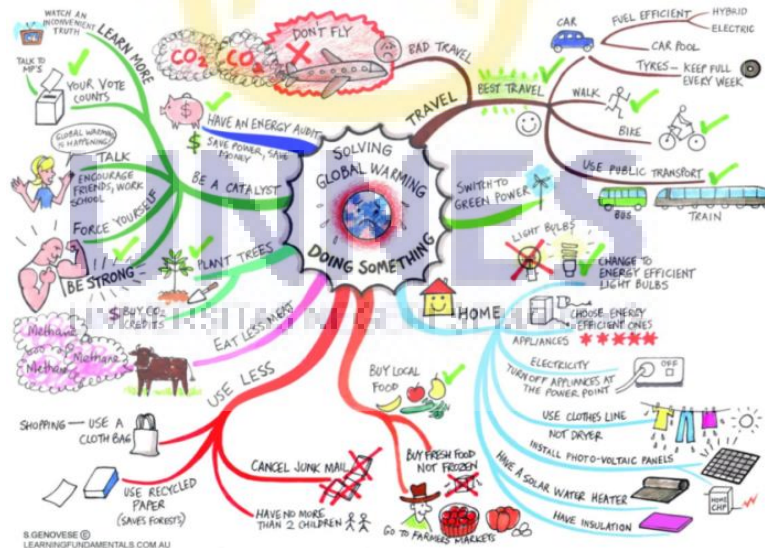 SOLVING
GLOBAL WARMING
DOING SOMETHING
TRAVEL
BAD TRAVEL
DON'T FLY
CO2
CO2
BEST TRAVEL
CAR
FUEL EFFICIENT
HYBRID
ELECTRIC
CAR POOL
TYRES — KEEP FULL
EVERY WEEK
WALK
BIKE
USE PUBLIC TRANSPORT
BUS
TRAIN
SWITCH TO
GREEN POWER
HOME
LIGHT BULBS
CHANGE TO
ENERGY EFFICIENT
LIGHT BULBS
APPLIANCES
CHOOSE ENERGY
EFFICIENT ONES
ELECTRICITY
TURN OFF APPLIANCES AT
THE POWER POINT
OFF
USE CLOTHES LINE
NOT DRYER
INSTALL PHOTO-VOLTAIC PANELS
HOME
CHP
HAVE A SOLAR WATER HEATER
HAVE INSULATION
BUY LOCAL
FOOD
BUY FRESH FOOD
NOT FROZEN
GO TO FARMERS MARKETS
USE LESS
SHOPPING — USE A
CLOTH BAG
USE RECYCLED
PAPER
(SAVES FORESTS)
CANCEL JUNK MAIL
HAVE NO MORE
THAN 2 CHILDREN
EAT LESS MEAT
Methane
Methane
Methane
PLANT TREES
$ BUY CO2
CREDITS
BE A CATALYST
LEARN MORE
WATCH AN
INCONVENIENT
TRUTH
TALK TO
MP'S
YOUR VOTE
COUNTS
GLOBAL WARMING
IS HAPPENING!
TALK
ENCOURAGE
FRIENDS, WORK
SCHOOL
FORCE YOURSELF
BE STRONG
HAVE AN ENERGY AUDIT
$ SAVE POWER, SAVE
MONEY
S.GENOVESE ©
LEARNINGFUNDAMENTALS.COM.AU
UNNES